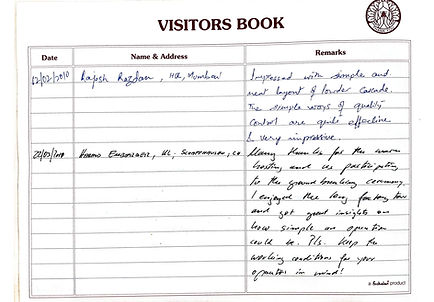 VISITORS BOOK
Date
Name & Address
Remarks
12/02/2010
Rajesh Razdan, HO, Mumbai
Impressed with simple and
neat layout of powder cascade.
The simple ways of quality
control are quite effective
& very impressive.
Many thanks for the warm
hosting and us participating
to the ground breaking ceremony.
I enjoyed the long factory tour
and got great insights on
how simple an operation
could be. Pls. keep the
working conditions for your
operators in mind!
a product